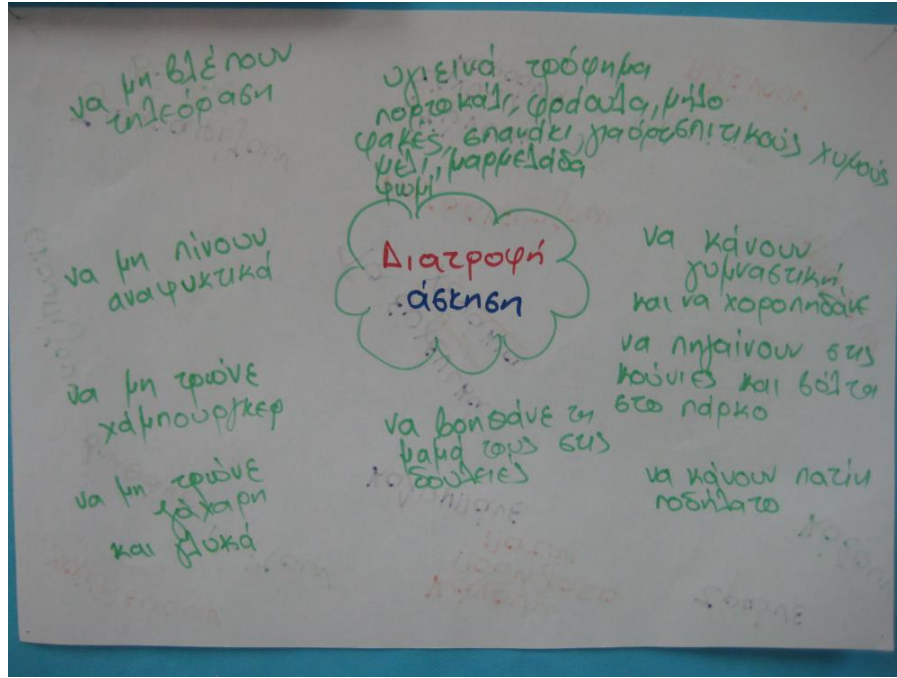 να μη βλέπουν
τηλεόραση
υγιεινά τρόφημα
πορτοκάλι, φράουλα, μήλο
φακές, σπανάκι, γιαόρτ σπιτικούς χυμούς
μέλι, μαρμελάδα
ψωμί
να μη πίνουν
αναψυκτικά
Διατροφή
άσκηση
να κάνουν
γυμναστική
και να χοροπηδάνε
να πηγαίνουν στις
κούνιες και βόλτα
στο πάρκο
να μη τρώνε
χάμπουργκερ
να βοηθάνε τη
μαμά τους στις
δουλειές
να μη τρώνε
ζάχαρη
και γλυκά
να κάνουν πατίνι
ποδήλατο